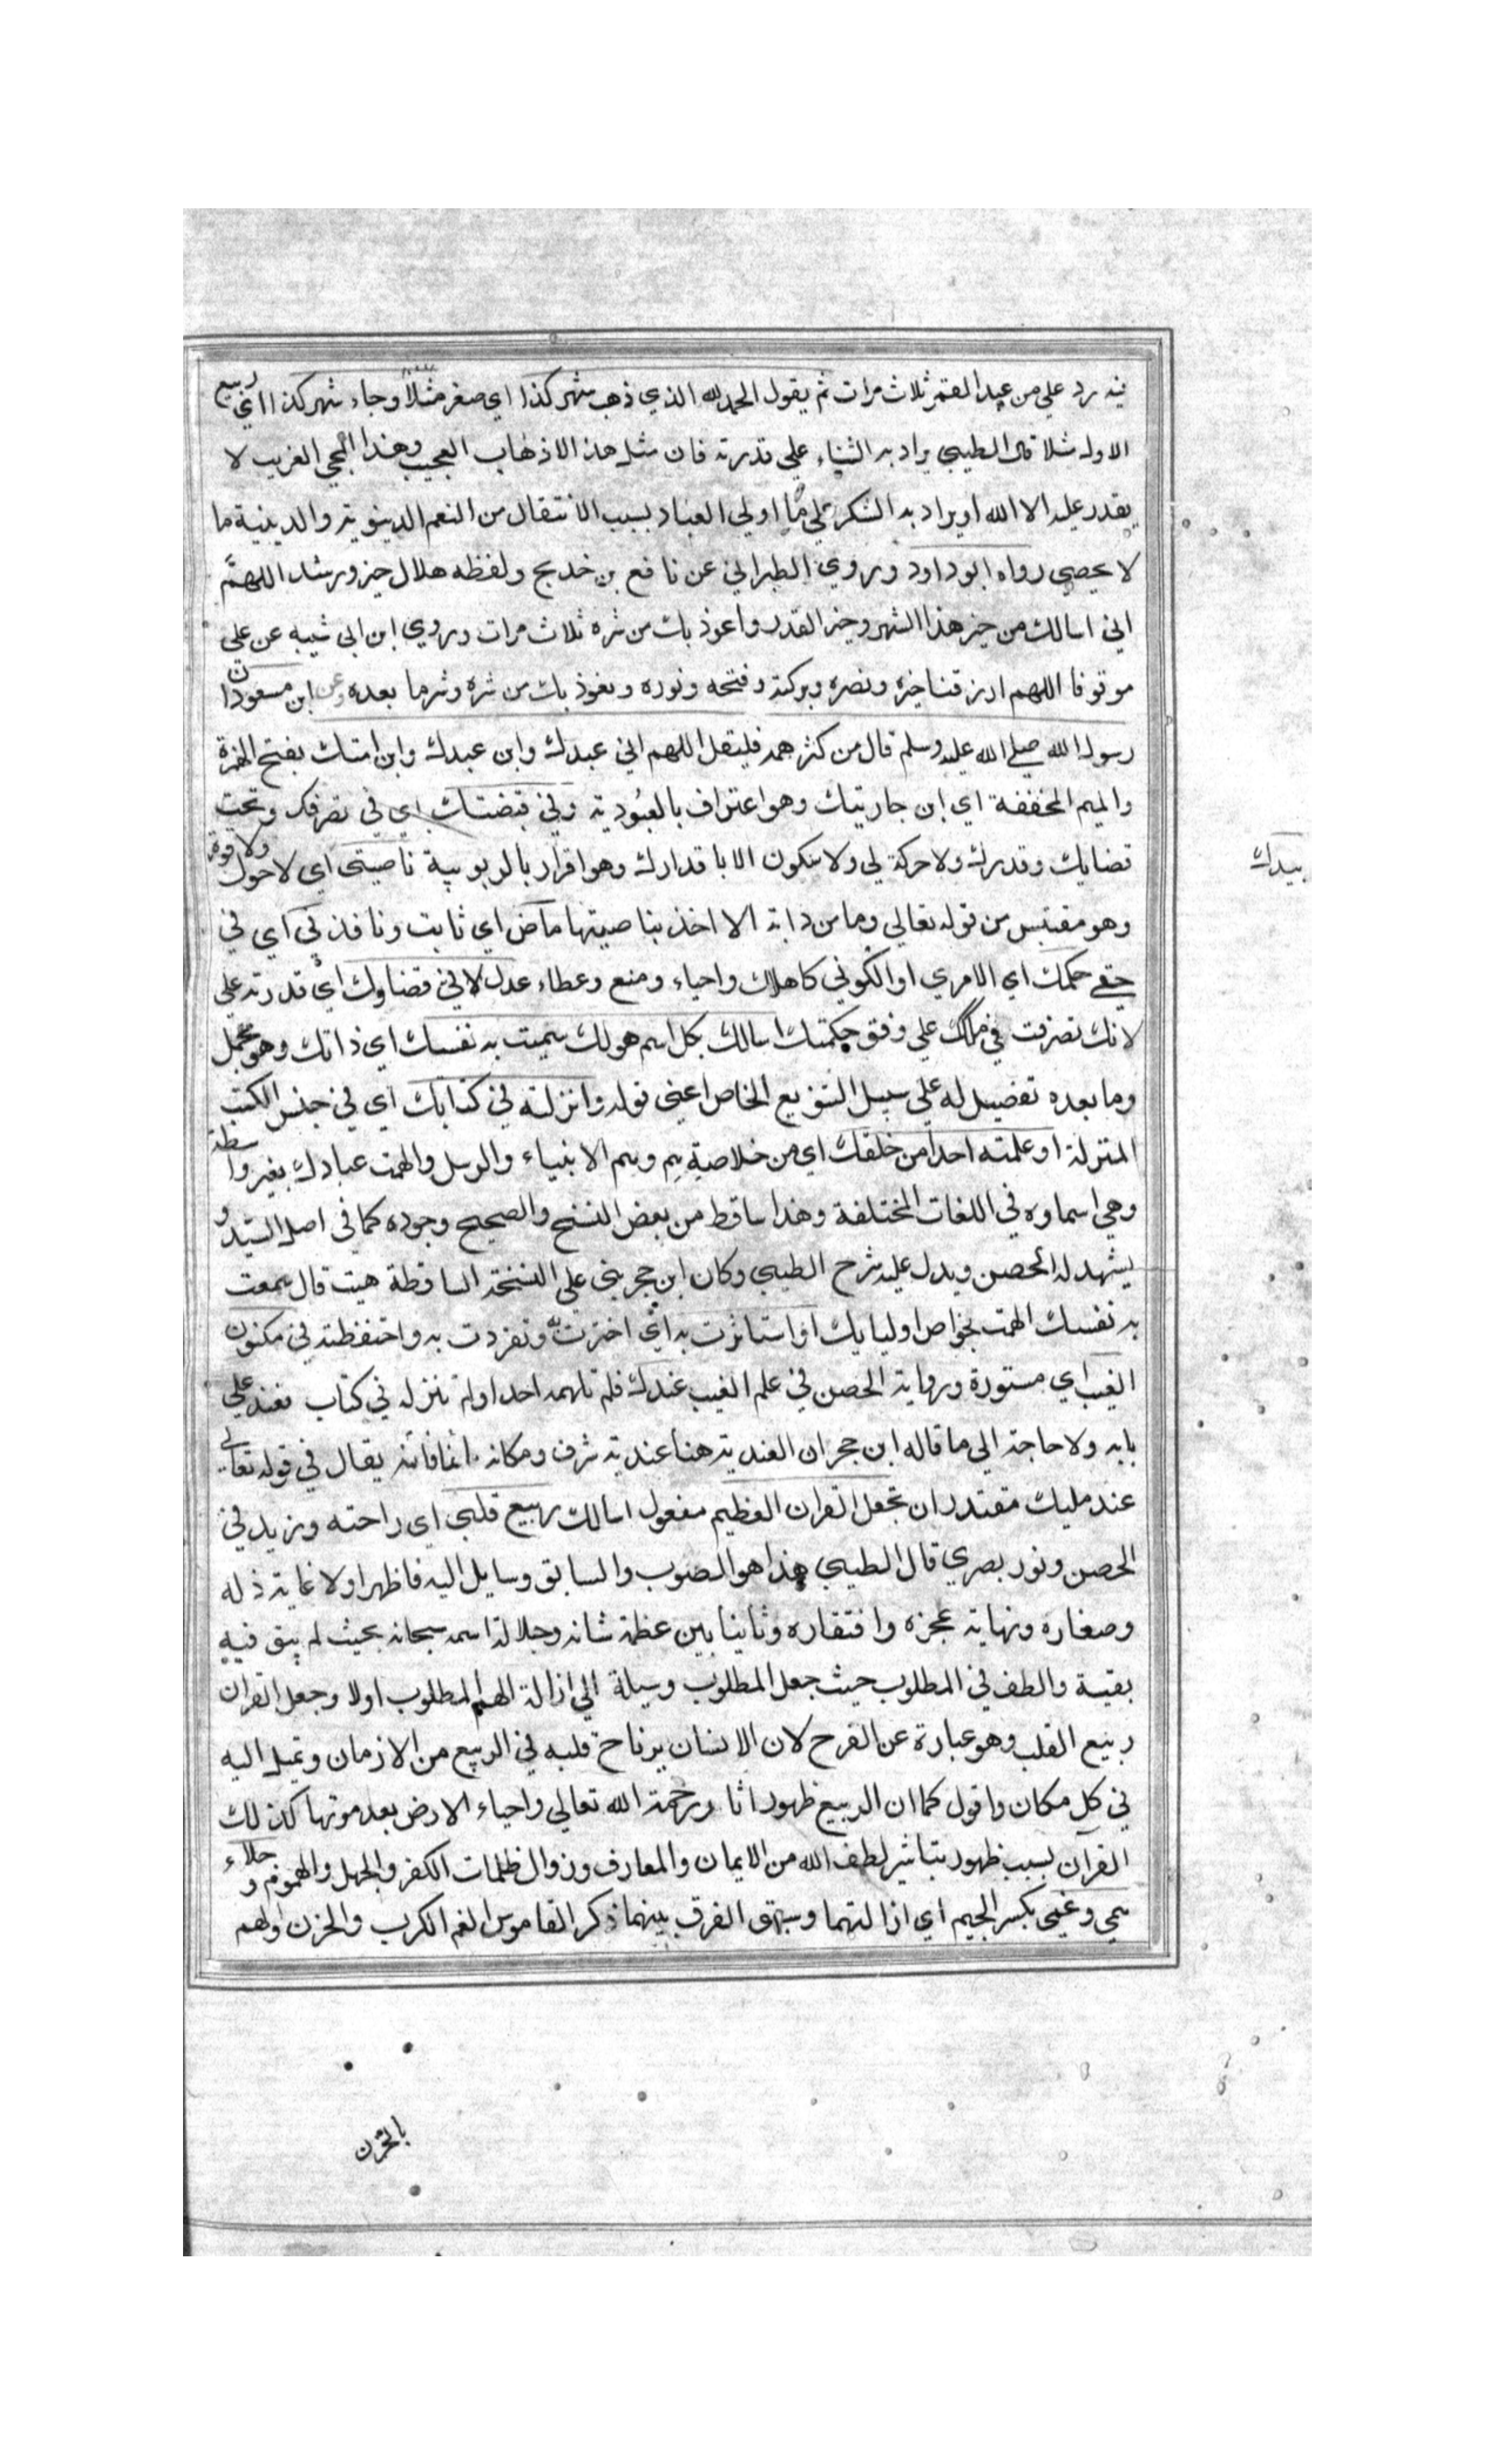 فيه رد علي من عبد القمر ثلاث مرات ثم يقول الحمد لله الذي ذهب بشهر كذا اي صفر مثلا وجاء شهر كذا اي ربيع
الاول مثلا قال الطيبي يراد به الثناء علي قدرته فان مثل هذا الاذهاب العجيب وهذا المجي الغريب لا
يقدر عليه الا الله او يراد به الشكر علي ما اولي العباد بسبب الانتقال من النعم الدينوية والدينية ما
لا يحصي رواه ابو داود وروي الطبراني عن نافع بن خديج ولفظه هلال خير ورشد اللهمّ
اني اسالك من خير هذا الشهر وخير القدر واعوذ بك من شره ثلاث مرات وروي ابن ابي شيبه عن علي
موقوفا اللهم ارزقنا خيره ونصره وبركته وفتحه ونوره ونعوذ بك من شره وشر ما بعده وعن ابن مسعود ان
رسول الله صلي الله عليه وسلم قال من كثر همه فليقل اللهم اني عبدك وابن عبدك وابن امتك بفتح الهمزة
والميم المخففة اي ابن جاريتك وهو اعتراف بالعبودية وفي قبضتك اي في تصرفك وتحت
قضايك وقدرك ولا حركة لي ولا سكون الا باقدارك وهو اقرار بالربوبية ناصيتي اي لا حول ولا قوة
بيدك
وهو مقتبس من قوله تعالي وما من دابة الا اخذ بناصيتها ماض اي ثابت ونافذ فيّ اي في
حقي حكمك اي الامري او الكوني كاهلاك واحياء ومنع وعطاء عدل لا في قضاوك اي قدرته علي
لانك تصرفت في ملكك علي وفق حكمتك اسالك بكل اسم هو لك سميت به نفسك اي ذاتك وهو مجمل
وما بعده تفصيل له علي سبيل التنويع الخاص اعني قوله وانزلته في كتابك اي في جنس الكتب
المنزلة او علمته احدا من خلقك اي من خلاصتهم وهم الانبياء والرسل والهمت عبادك بغير واسطة
وهي اسماوه في اللغات المختلفة وهذا ساقط من بعض النسخ والصحيح وجوده كما في اصل السيد و
يشهد له الحصن ويدل عليه شرح الطيبي وكان ابن حجر بني علي النسخة الساقطة حيث قال سمعت
به نفسك الهمت بخواص اوليايك او استاثرت به اي اخترت وتفردت به واحتفظته في مكنون
الغيب اي مستورة ورواية الحصن في علم الغيب عندك فلم تلهمه احدا ولم تنزله في كتاب فعند علي
بابه ولا حاجة الي ما قاله ابن حجر ان العندية هنا عندية شرف ومكانه يقال في قوله تعالي
عند مليك مقتدر ان تجعل القران العظيم مفعول اسالك ربيع قلبي اي راحته وزيد في
الحصن ونور بصري قال الطيبي هذا هو المطلوب والسابق وسايل اليه فاظهر اولا غاية ذله
وصغاره ونهاية عجزه وافتقاره وثانيا بين عظمة شانه وجلالة اسمه سبحانه بحيث لم يبق فيه
بقية والطف في المطلوب حيث جعل المطلوب وسيلة الي ازالة الهم المطلوب اولا وجعل القران
ربيع القلب وهو عبارة عن الفرح لان الانسان يرتاح قلبه في الربيع من الازمان وتميل اليه
في كل مكان واقول كما ان الربيع ظهور اثار رحمة الله تعالي واحياء الارض بعد موتها كذلك
القرآن بسبب ظهور تباشير لطف الله من الايمان والمعارف وزوال ظلمات الكفر والجهل والهموم وجلاء
همي وغمي بكسر الجيم اي ازالتهما وسبق الفرق بينهما ذكر القاموس الغم الكرب والحزن والهم
بالحزن